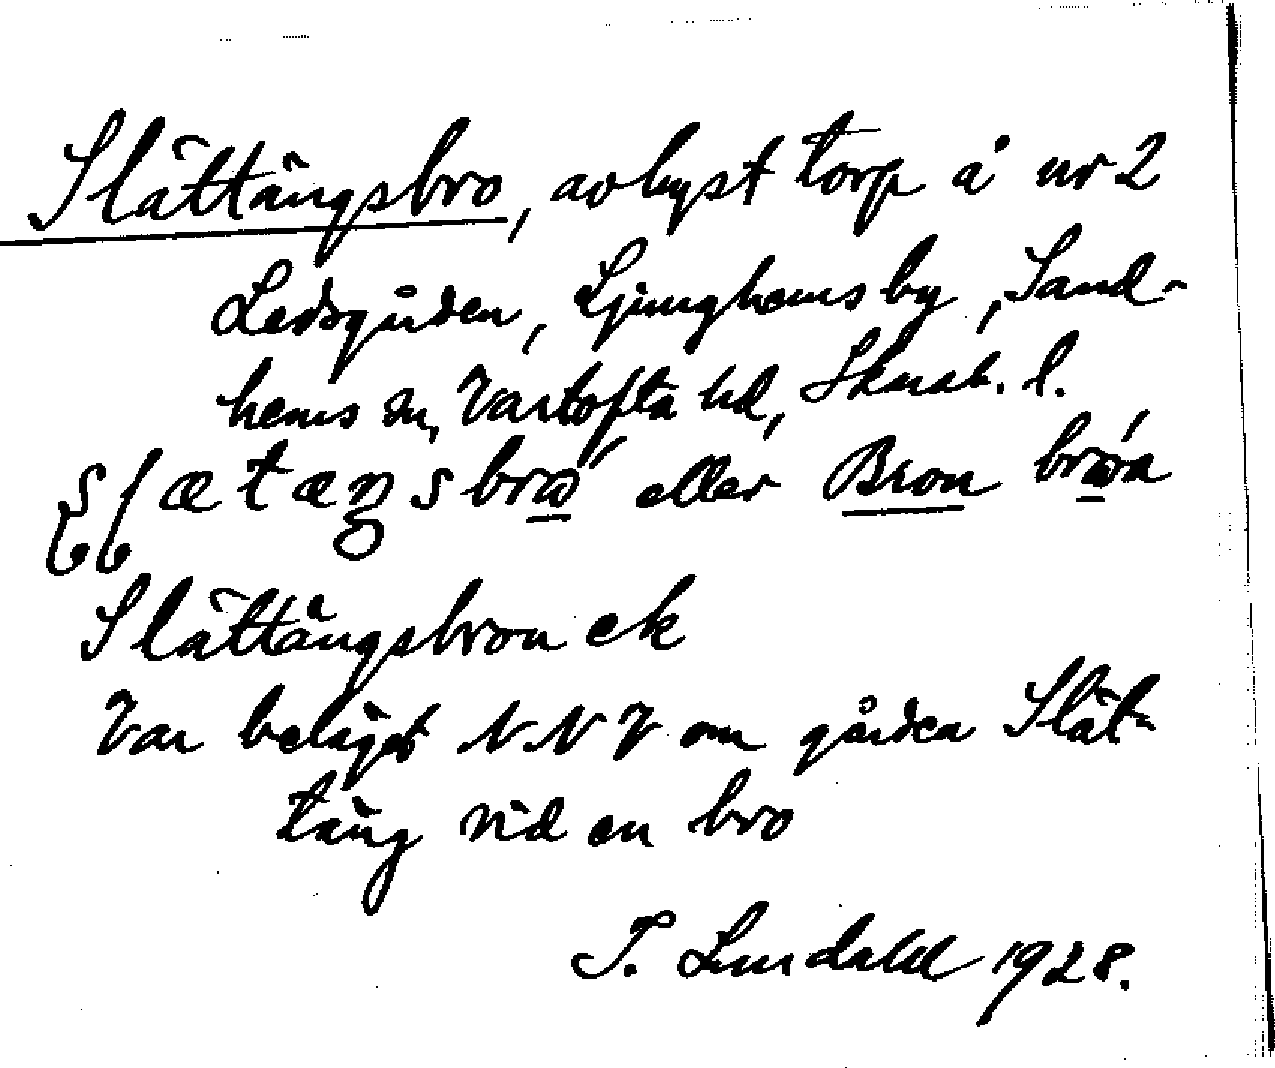 Slättängsbro, avhyst torp å nr 2
Ledsgården, Ljunghems by, Sand-
hems sn, Vartofta hd, Skarab. l.
slætæŋsbrω´ eller Bron brω´n
Slättängsbron ek
Var beläget N.N.V. om gården Slät-
täng vid en bro
T. Lindahl 1928.